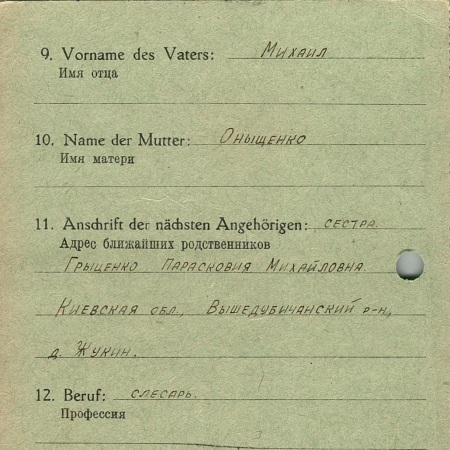 9. Vorname des Vaters: Михаил
Имя отца
10. Name der Mutter: Оныщенко
Имя матери
11. Anschrift der nächsten Angehörigen: сестра.
Адрес ближайших родственников
Грыценко Парасковия Михайловна.
Киевская обл., Вышедубичанский р-н,
д. Жукин.
12. Beruf: слесарь.
Профессия